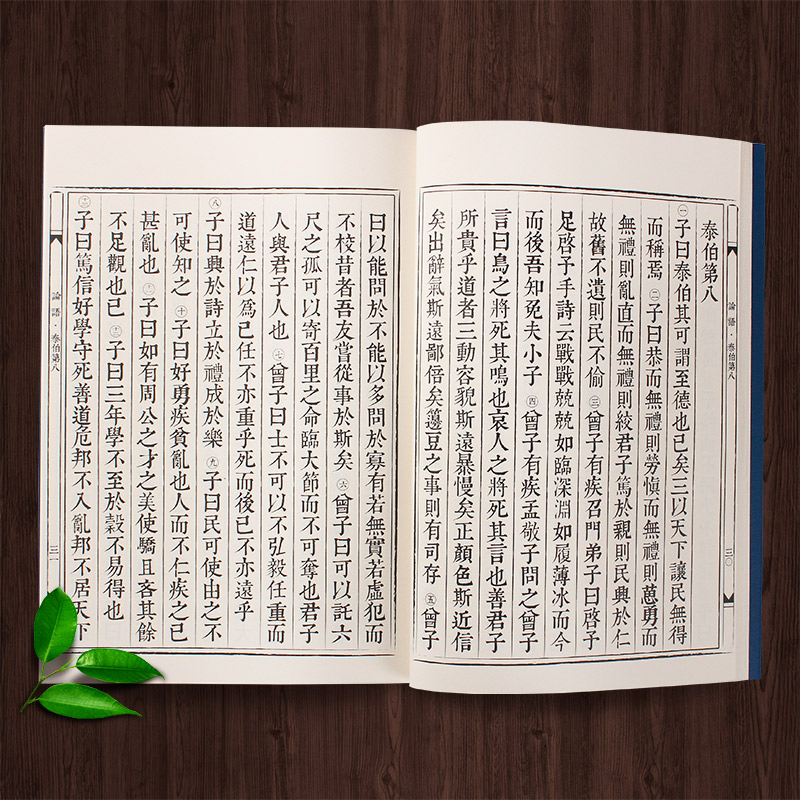 論語・泰伯第八 三〇
泰伯第八
㊀子曰泰伯其可謂至德也已矣三以天下讓民無得
而稱焉㊁子曰恭而無禮則勞愼而無禮則葸勇而
無禮則亂直而無禮則絞君子篤於親則民興於仁
故舊不遺則民不偷㊂曾子有疾召門弟子曰啓予
足啓予手詩云戰戰兢兢如臨深淵如履薄冰而今
而後吾知免夫小子㊃曾子有疾孟敬子問之曾子
言曰鳥之將死其鳴也哀人之將死其言也善君子
所貴乎道者三動容貌斯遠暴慢矣正顏色斯近信
矣出辭氣斯遠鄙倍矣籩豆之事則有司存㊄曾子
曰以能問於不能以多問於寡有若無實若虛犯而
不校昔者吾友嘗從事於斯矣㊅曾子曰可以託六
尺之孤可以寄百里之命臨大節而不可奪也君子
人與君子人也㊆曾子曰士不可以不弘毅任重而
道遠仁以爲己任不亦重乎死而後已不亦遠乎
㊇子曰興於詩立於禮成於樂㊈子曰民可使由之不
可使知之㊉子曰好勇疾貧亂也人而不仁疾之已
甚亂也 十一 子曰如有周公之才之美使驕且吝其餘
不足觀也已 十二 子曰三年學不至於穀不易得也
十三 子曰篤信好學守死善道危邦不入亂邦不居天下
論語・泰伯第八 三一